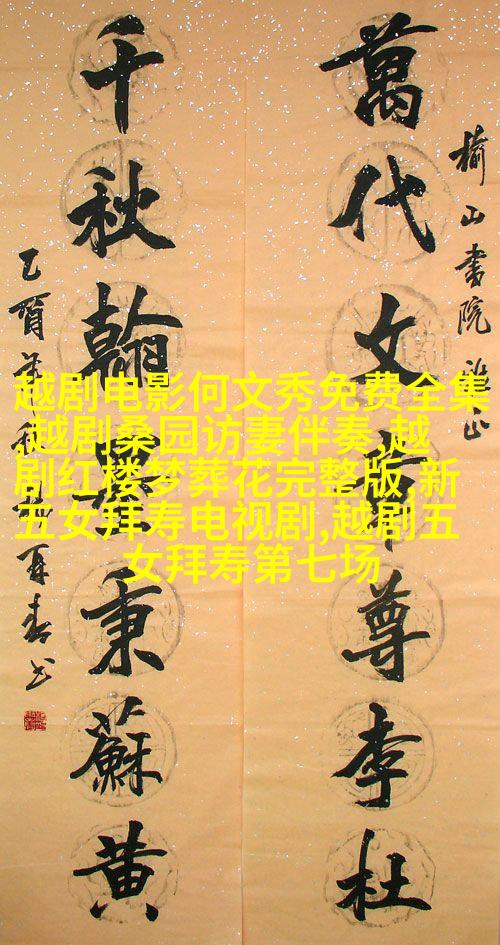 榆山書院雅正
萬代文章尊李杜
千秋翰墨秉蘇黄
乙酉年秋再春书
越剧电影何文秀免费全集
,越剧桑园访妻伴奏,越
剧红楼梦葬花完整版,新
五女拜寿电视剧,越剧五
女拜寿第七场